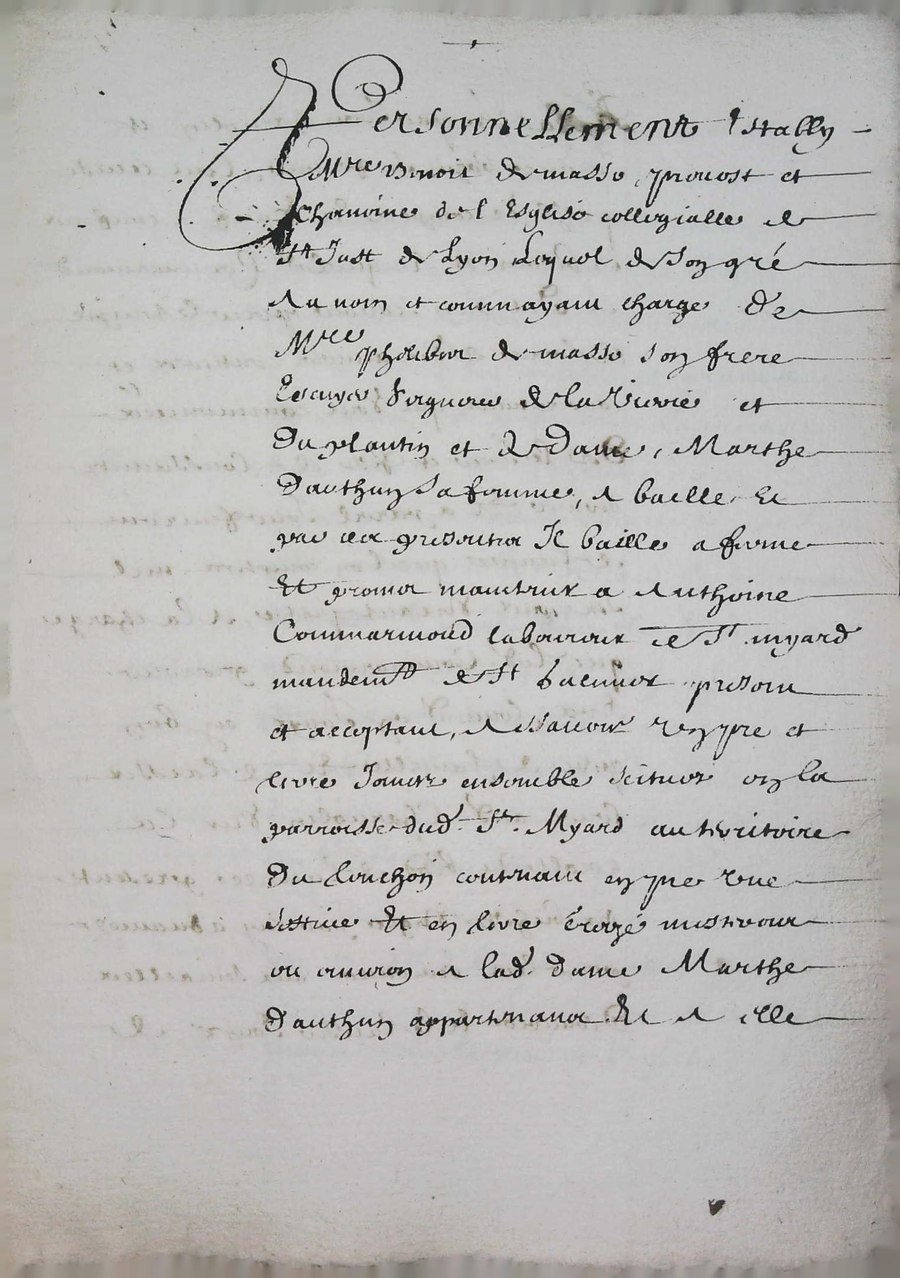 Personnellement Establly
Mre Benoit de masso, provost et
chanoine de l Esglise collegialle de
St Just de Lyon Lequel de son gré
Au nom et comme ayant charge de
Mre Pheliber de masso son frere
Escuyer seigneur de la et
Du plantin et de Dame, Marthe
Dauthun sa femme, A baille et
par ces presentes Il baille a ferme
Et promet maintenir a Anthoine
Commarmond laboureur de St myard
mandemt de St presant
et acceptant, A scavoir et
terre Joincts ensemble scitues en la
parroisse dud. St. Myard au territoire
Du Louchon contenant
et en terre mesteres
ou environ A lad. dame Marthe
Dauthun appartenans Et A elle